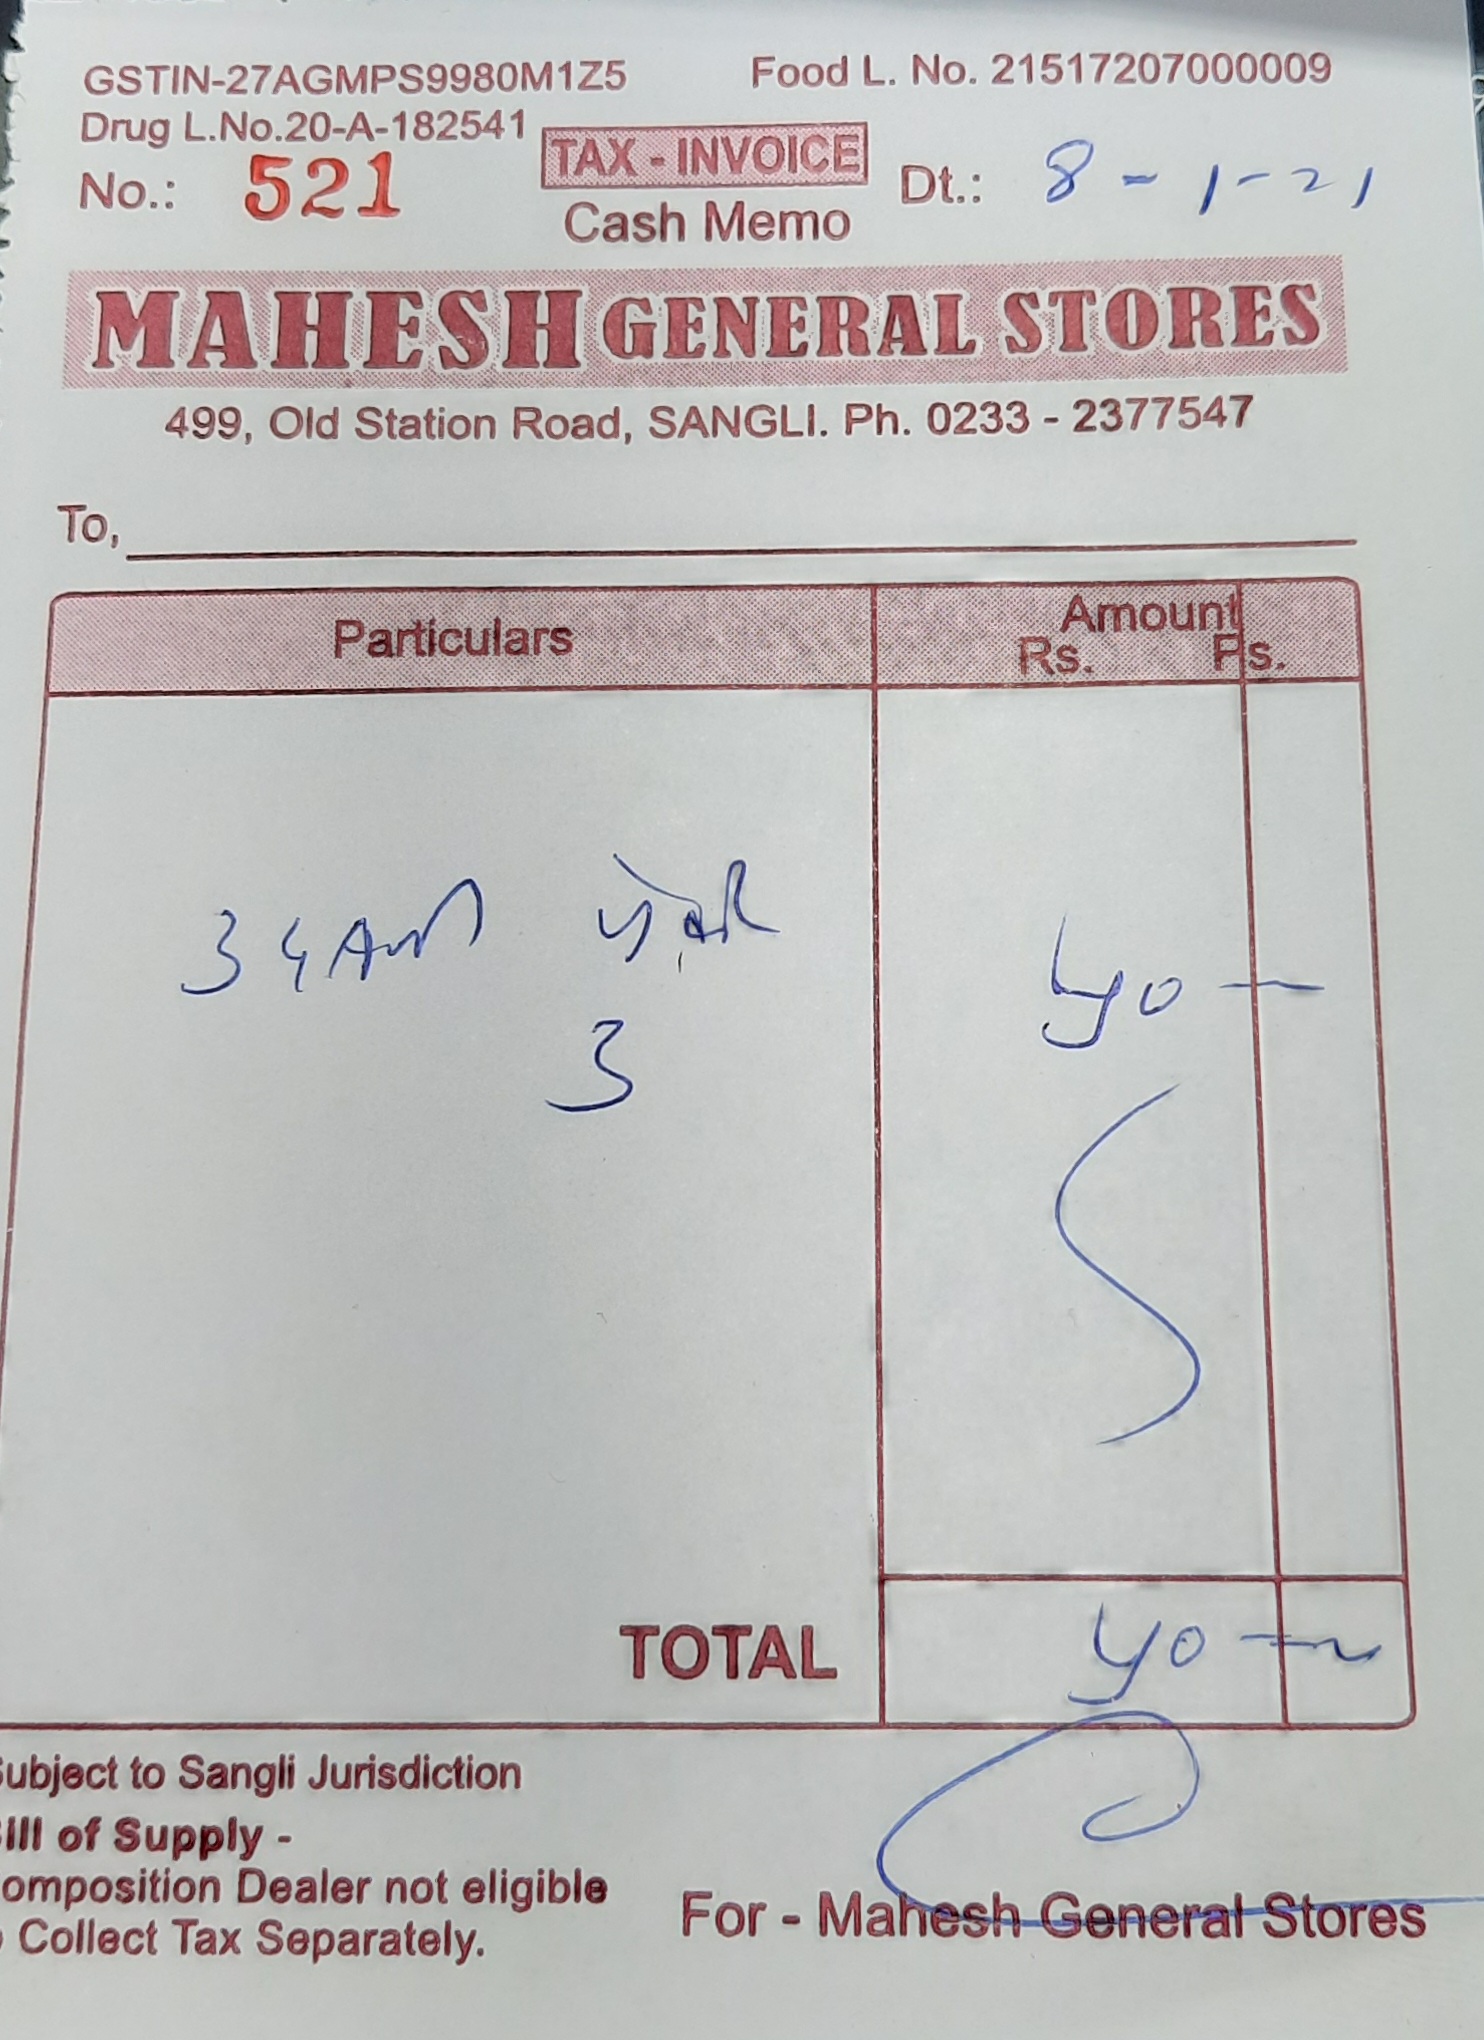 GSTIN-27AGMPS9980M1Z5 Food L. No. 21517207000009
Drug L.No.20-A-182541
TAX - INVOICE
No.: 521 Dt.: 8-1-21
Cash Memo
MAHESH GENERAL STORES
499, Old Station Road, SANGLI. Ph. 0233 - 2377547
To,
Particulars Amount
Rs. Ps.
५०
3
TOTAL ५०
ubject to Sangli Jurisdiction
ill of Supply -
omposition Dealer not eligible
Collect Tax Separately.
For - Mahesh General Stores